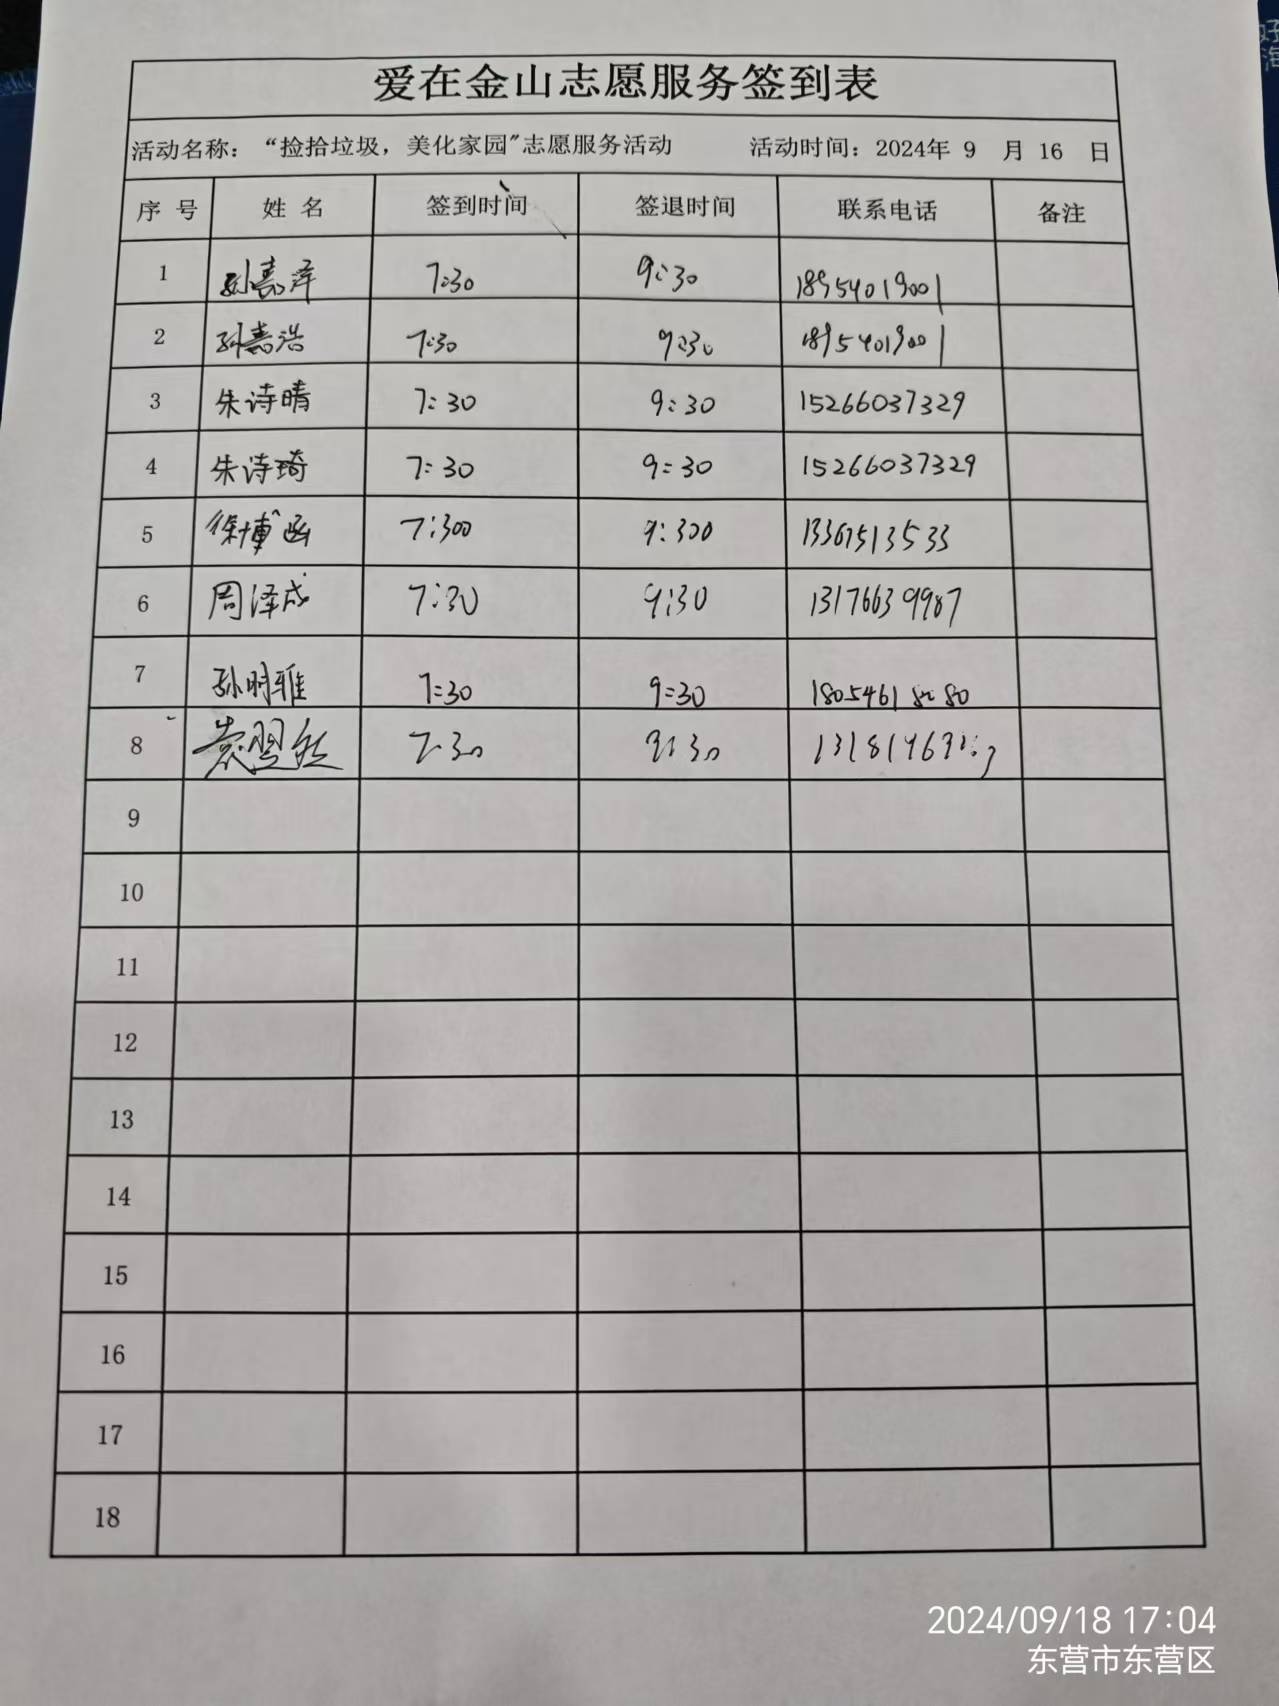 爱在金山志愿服务签到表
活动名称：“捡拾垃圾，美化家园”志愿服务活动 活动时间：2024年 9 月 16 日
序 号 姓 名 签到时间 签退时间 联系电话 备注
1 孙嘉泽 7:30 9:30 18954019001
2 孙嘉浩 7:30 9:30 18954019001
3 朱诗晴 7:30 9:30 15266037329
4 朱诗琦 7:30 9:30 15266037329
5 徐博函 7:300 9:300 13365513533
6 周泽成 7:30 9:30 13176639987
7 孙明雅 7:30 9:30 18054618080
8 7:30 9:30
9
10
11
12
13
14
15
16
17
18
2024/09/18 17:04
东营市东营区